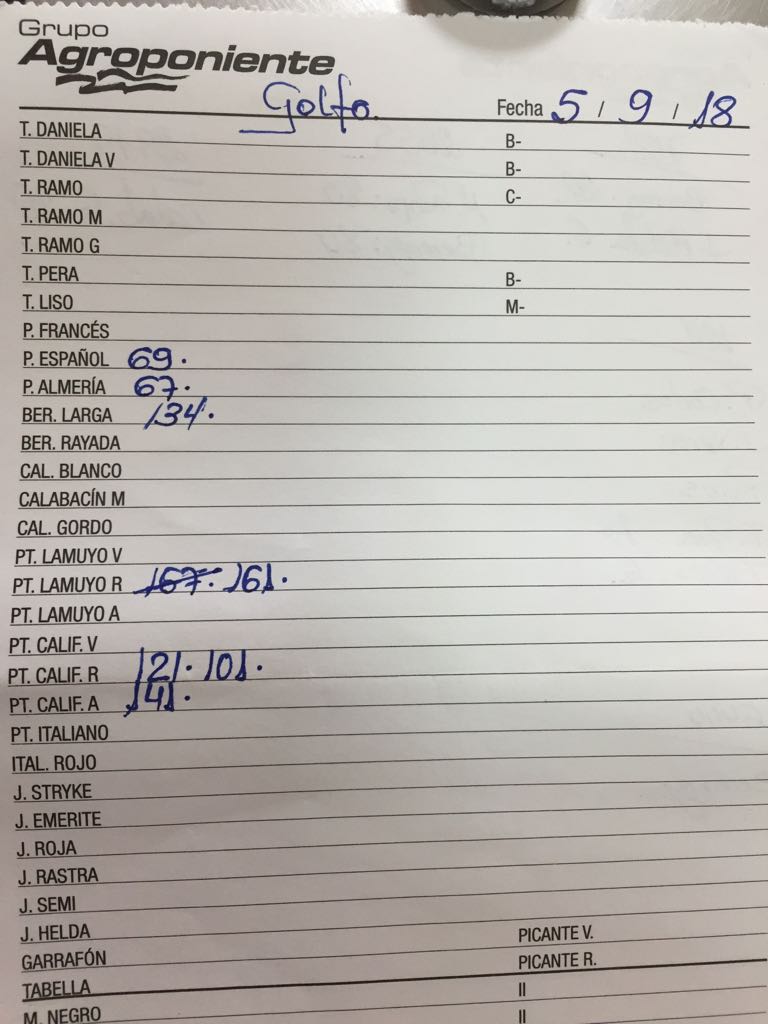 Grupo
Agroponiente
Golfo. Fecha 5 / 9 / 18
T. DANIELA B-
T. DANIELA V B-
T. RAMO C-
T. RAMO M
T. RAMO G
T. PERA B-
T. LISO M-
P. FRANCÉS
P. ESPAÑOL 69.
P. ALMERÍA 67.
BER. LARGA 134.
BER. RAYADA
CAL. BLANCO
CALABACÍN M
CAL. GORDO
PT. LAMUYO V
PT. LAMUYO R 167. 161.
PT. LAMUYO A
PT. CALIF. V
PT. CALIF. R 121. 101.
PT. CALIF. A 141.
PT. ITALIANO
ITAL. ROJO
J. STRYKE
J. EMERITE
J. ROJA
J. RASTRA
J. SEMI
J. HELDA PICANTE V.
GARRAFÓN PICANTE R.
TABELLA II
M. NEGRO II